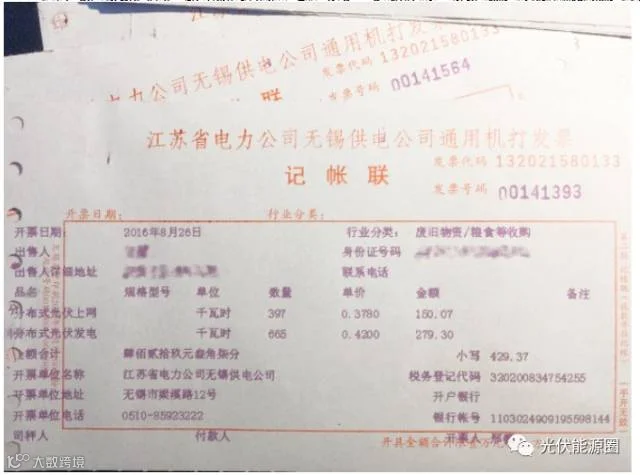 江苏省电力公司无锡供电公司通用机打发票
发票代码 132021580133
发票号码 00141564
江苏省电力公司无锡供电公司通用机打发票
发票代码 132021580133
记帐联
发票号码 00141393
开票日期: 行业分类:
开票日期: 2016年8月26日 行业分类: 废旧物资/粮食等收购
出售人 身份证号码
出售人详细地址 联系电话
品名 规格型号 单位 数量 单价 金额 备注
分布式光伏上网 千瓦时 397 0.3780 150.07
分布式光伏发电 千瓦时 665 0.4200 279.30
金额合计 肆佰贰拾玖元叁角柒分 小写 429.37
开票单位名称 江苏省电力公司无锡供电公司 税务登记代码 320200834754255
开票单位地址 无锡市梁溪路12号 开户银行
开票单位电话 0510-85923222 银行帐号 1103024909195598144
司秤人 付款人 开票人
手开无效
大数跨境
光伏能源圈